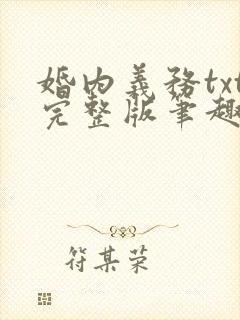 婚内義務txt
完整版筆趣
符某荣